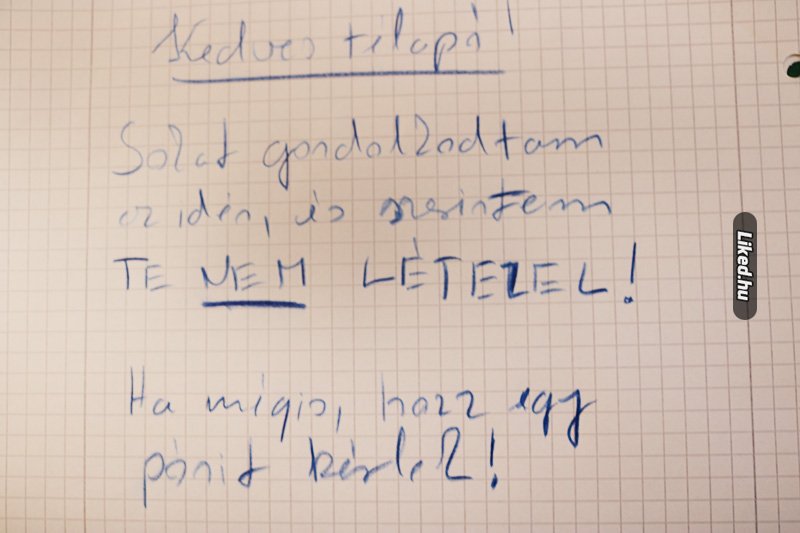 Kedves télapó!
Sokat gondolkodtam
az idén, és szerintem
TE NEM LÉTEZEL!
Ha mégis, hozz egy
pónit kérlek!
Liked.hu